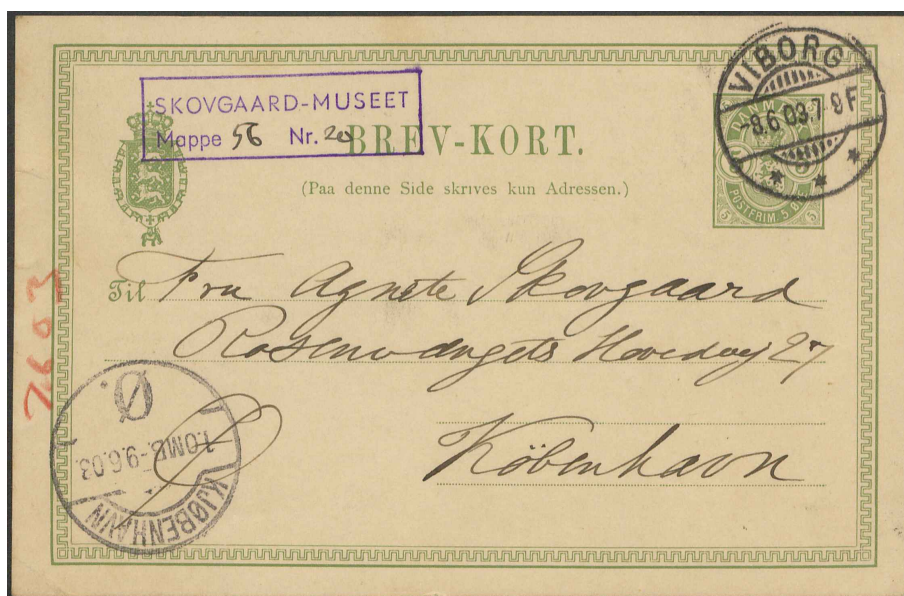 SKOVGAARD-MUSEET
Mappe 56 Nr. 20
BREV-KORT.
(Paa denne Side skrives kun Adressen.)
VIBORG
-9.6.03.7-8F
POSTFRIM. 5 ØRE
5 5
Til Fru Agnete Skovgaard
Rosenvængets Hovedvej 27
København
7603
Ø
1.OMB.-9.6.03.
KJØBENHAVN